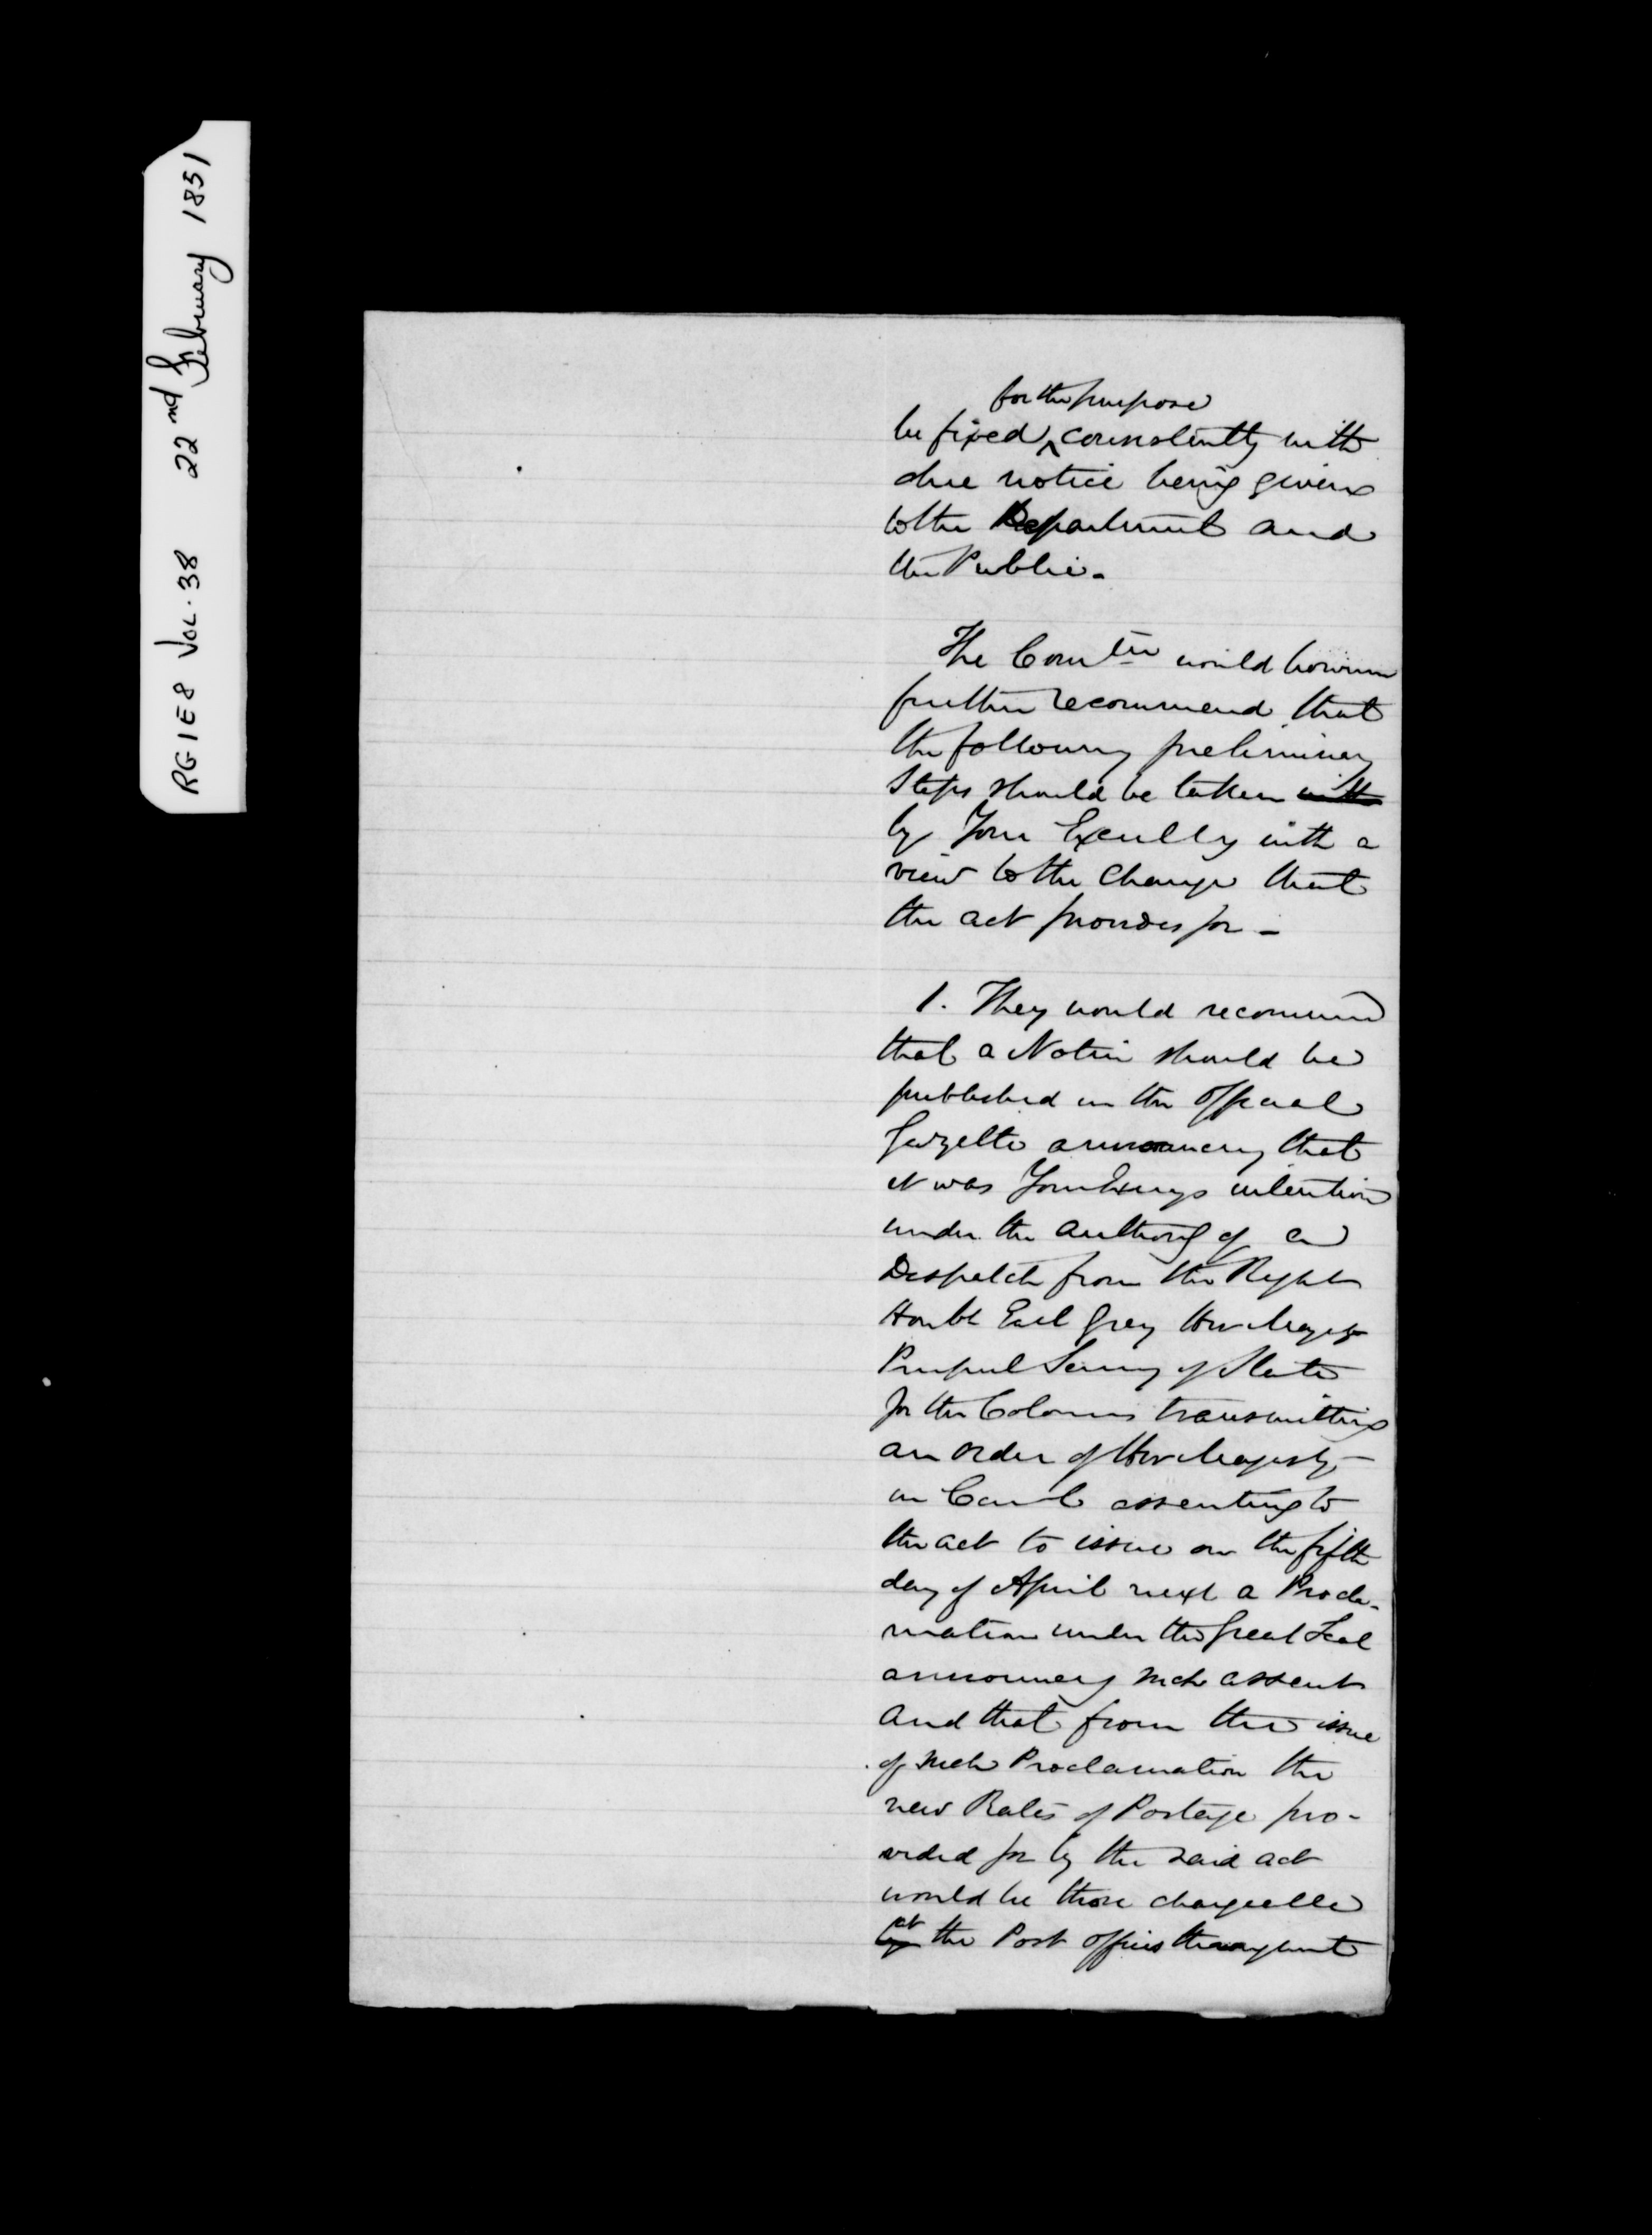 RG1E8 VOL. 38 22nd February 1851
for the purpose
be fixed ^ consistently with
due notice being given
to the Department and
the Public.
The Comtee would however
further recommend that
the following preliminary
Steps should be taken with
by Your Excellcy with a
view to the Change that
the act provides for -
1. They would recommend
that a Notice should be
published in the Official
Gazette announcing that
it was Your Excys intention
under the authority of a
Despatch from the Right
Honble Earl Grey Her Majestys
Principal Secrety of State
for the Colonies transmitting
an order of Her Majesty -
in Council assenting to
the act to issue on the fifth
day of April next a Procla-
mation under the Great Seal
announcing such assent
and that from the issue
of such Proclamation the
new Rates of Postage pro-
vided for by the said act
would be those chargeable
at
by the Post offices throughout